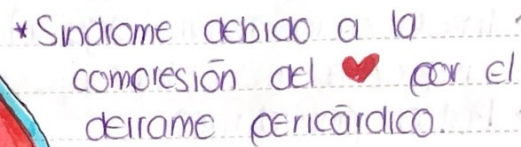 * Sndrome debido a la
compresión del ❤ por el
derrame pericárdico.